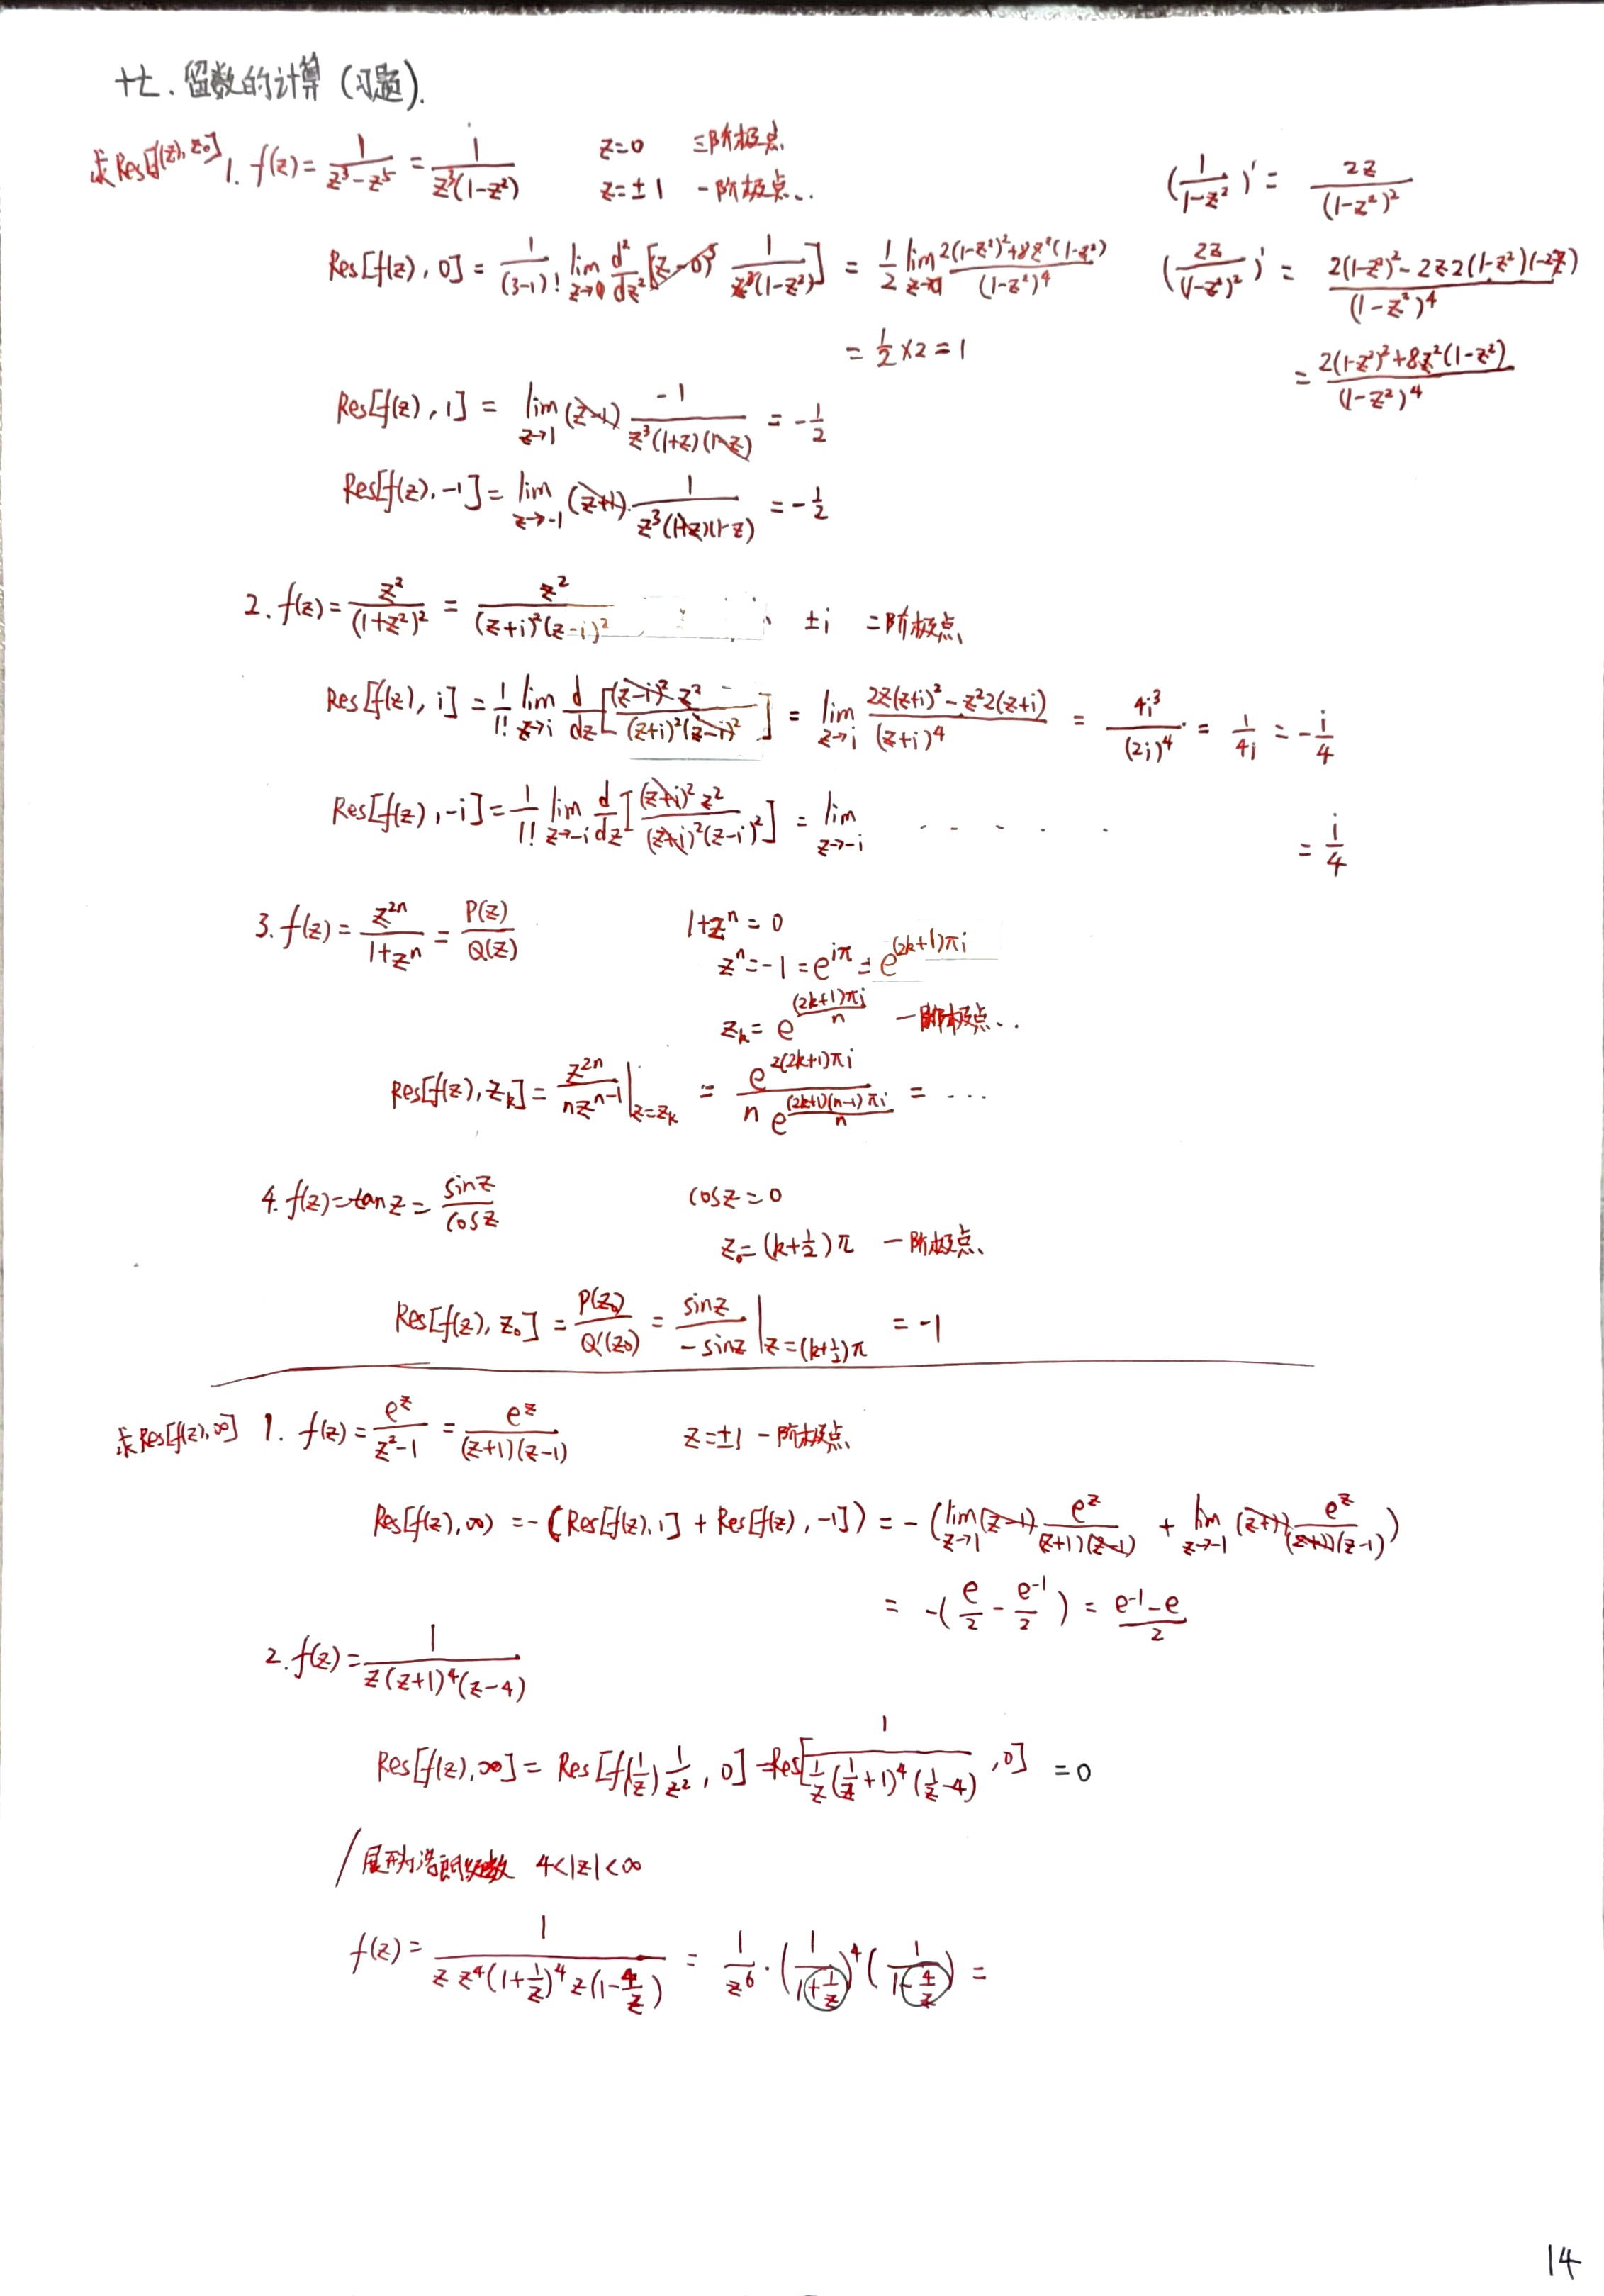 十七. 留数的计算 (习题).
求Res[f(z), z₀] 1. f(z) = 1/(z³-z⁵) = 1/(z³(1-z²))  z=0 三阶极点
z=±1 一阶极点.
(1/(1-z²))' = 2z/(1-z²)²
Res[f(z), 0] = 1/(3-1)! lim_{z→0} d²/dz² [(z-0)³ 1/(z³(1-z²))] = 1/2 lim_{z→0} (2(1-z²)²+8z²(1-z²))/(1-z²)⁴
(2z/(1-z²)²)' = (2(1-z²)²-2z·2(1-z²)(-2z))/(1-z²)⁴
= 1/2 × 2 = 1
= (2(1-z²)²+8z²(1-z²))/(1-z²)⁴
Res[f(z), 1] = lim_{z→1} (z-1) -1/(z³(1+z)(1-z)) = -1/2
Res[f(z), -1] = lim_{z→-1} (z+1)·1/(z³(1+z)(1-z)) = -1/2
2. f(z) = z²/(1+z²)² = z²/((z+i)²(z-i)²)  ±i 二阶极点
Res[f(z), i] = 1/1! lim_{z→i} d/dz [(z-i)² z²/((z+i)²(z-i)²)] = lim_{z→i} (2z(z+i)²-z²2(z+i))/(z+i)⁴ = 4i³/(2i)⁴ = 1/4i = -i/4
Res[f(z), -i] = 1/1! lim_{z→-i} d/dz [(z+i)² z²/((z+i)²(z-i)²)] = lim_{z→-i} . . . . . = i/4
3. f(z) = z²ⁿ/(1+zⁿ) = P(z)/Q(z)  1+zⁿ = 0
zⁿ = -1 = e^{iπ} = e^{(2k+1)πi}
z_k = e^{(2k+1)πi/n} 一阶极点..
Res[f(z), z_k] = z²ⁿ/(nzⁿ⁻¹) |_{z=z_k} = e^{2(2k+1)πi}/(n e^{(2k+1)(n-1)πi/n}) = ...
4. f(z) = tan z = sinz/cosz  cosz = 0
z₀ = (k+1/2)π 一阶极点
Res[f(z), z₀] = P(z₀)/Q'(z₀) = sinz/-sinz |_{z=(k+1/2)π} = -1
求Res[f(z), ∞] 1. f(z) = e^z/(z²-1) = e^z/((z+1)(z-1))  z=±1 一阶极点
Res[f(z), ∞) = -(Res[f(z), 1] + Res[f(z), -1]) = -(lim_{z→1} (z-1) e^z/((z+1)(z-1)) + lim_{z→-1} (z+1) e^z/((z+1)(z-1)))
= -(e/2 - e⁻¹/2) = (e⁻¹-e)/2
2. f(z) = 1/(z(z+1)⁴(z-4))
Res[f(z), ∞] = Res[f(1/z) 1/z², 0] = Res[1/(1/z (1/z+1)⁴ (1/z-4)), 0] = 0
/ 展开为洛朗级数 4<|z|<∞
f(z) = 1/(z z⁴(1+1/z)⁴ z(1-4/z)) = 1/z⁶ · (1/(1+1/z))⁴ (1/(1-4/z)) =
14